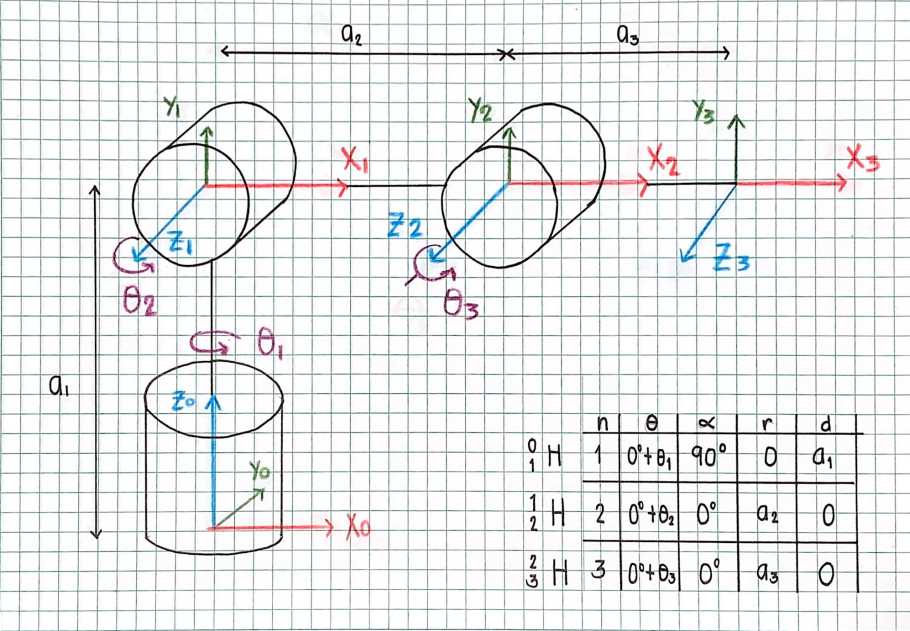 a₂ a₃
Y₁ Y₂ Y₃
X₁ X₂ X₃
Z₁ Z₂ Z₃
θ₂ θ₃
θ₁
a₁
Z₀
Y₀
X₀
n θ α r d
⁰₁H 1 0°+θ₁ 90° 0 a₁
¹₂H 2 0°+θ₂ 0° a₂ 0
²₃H 3 0°+θ₃ 0° a₃ 0